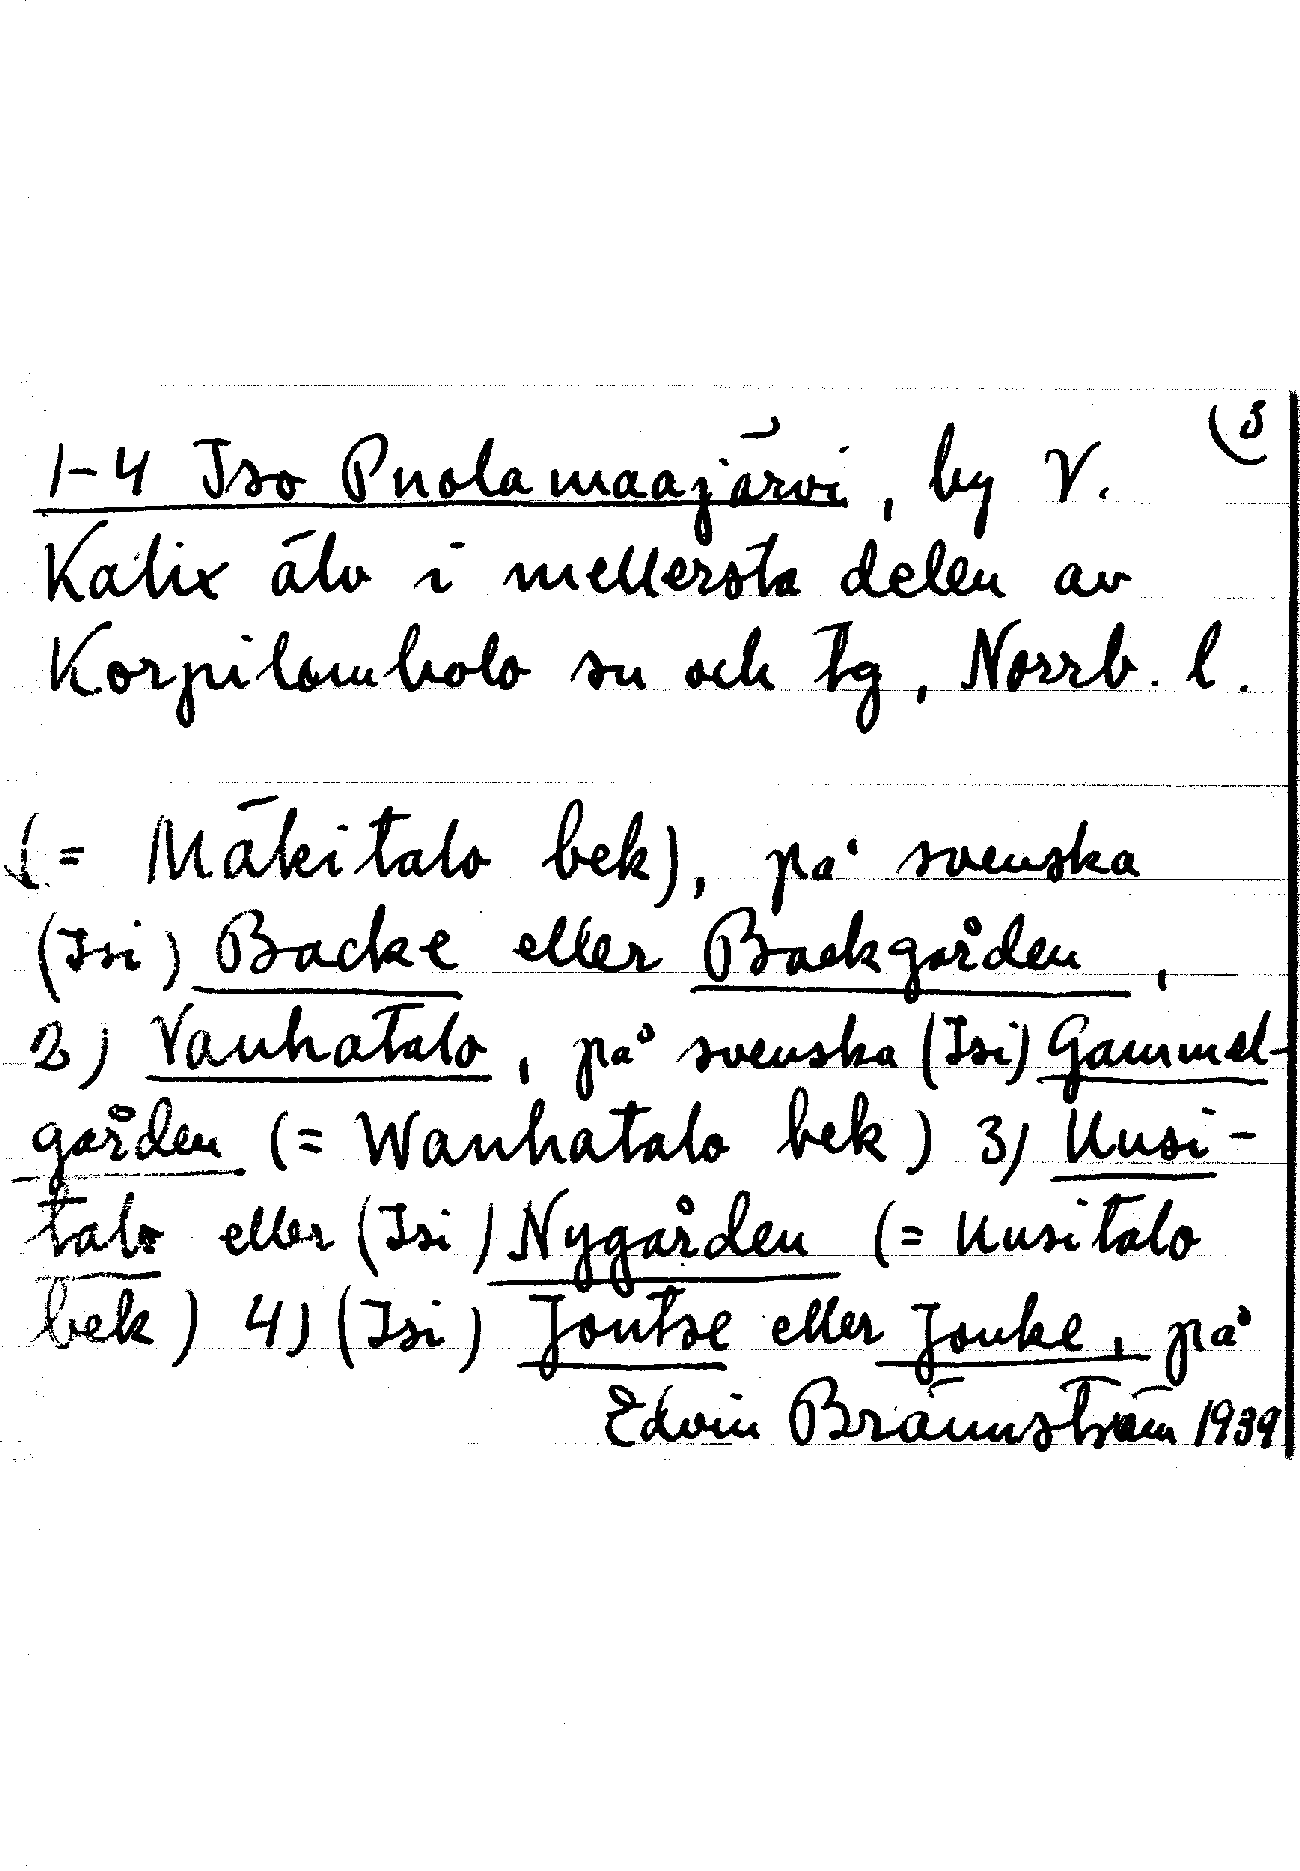 3
1-4 Iso Puolamaajärvi, by V.
Kalix älv i mellersta delen av
Korpilombolo sn och tg, Norrb. l.
(= Mäkitalo bek), på svenska
(Isi) Backe eller Backgården,
2) Vanhatalo, på svenska (Isi) Gammel-
gården (= Wanhatalo bek) 3) Uusi-
talo eller (Isi) Nygården (= Uusitalo
bek) 4) (Isi) Jontse eller Jonke, på
Edvin Brännström 1939